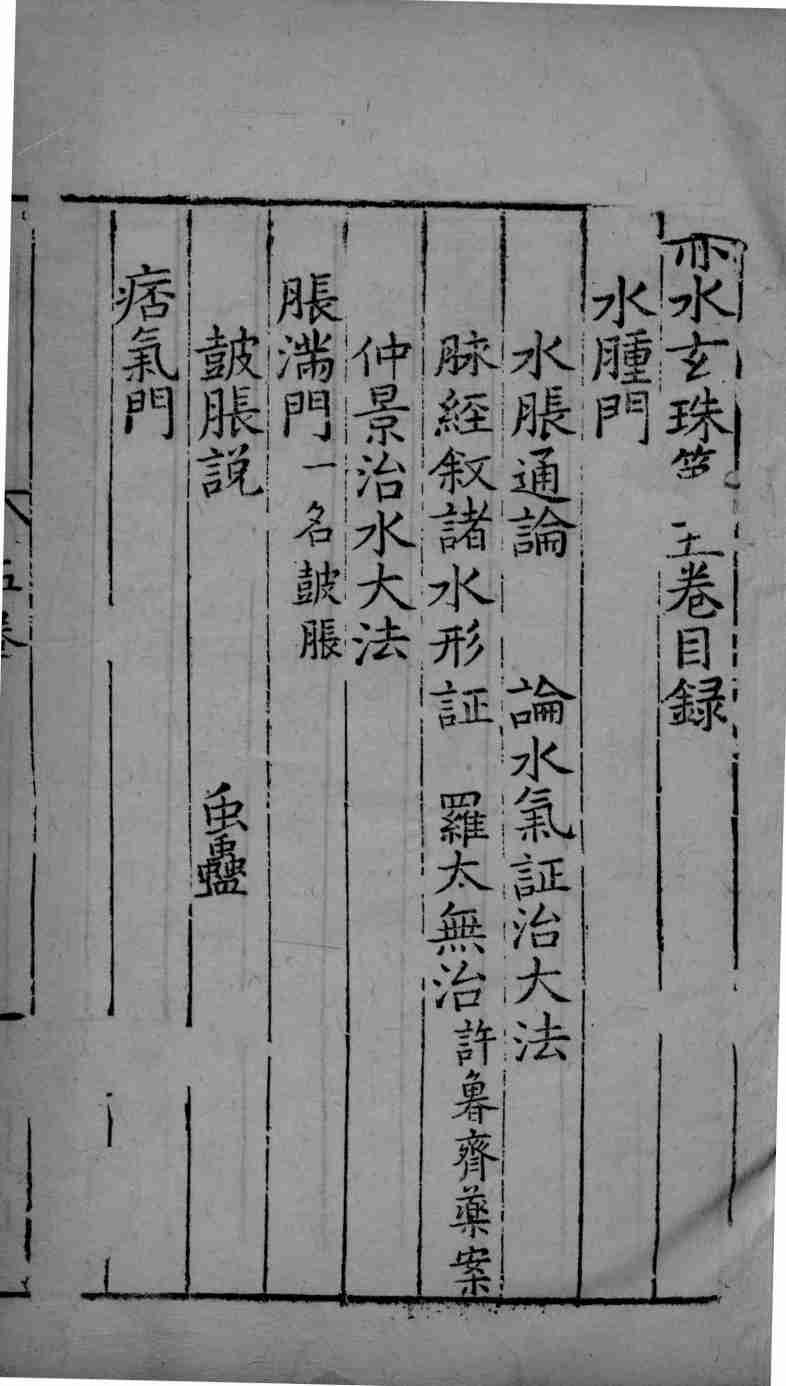 赤水玄珠第五卷目録
水腫門
水脹通論　論水氣証治大法
脉經叙諸水形証　羅太無治許魯齊藥案
仲景治水大法
脹滿門一名鼓脹
鼓脹説　蟲蠱
痞氣門
五卷